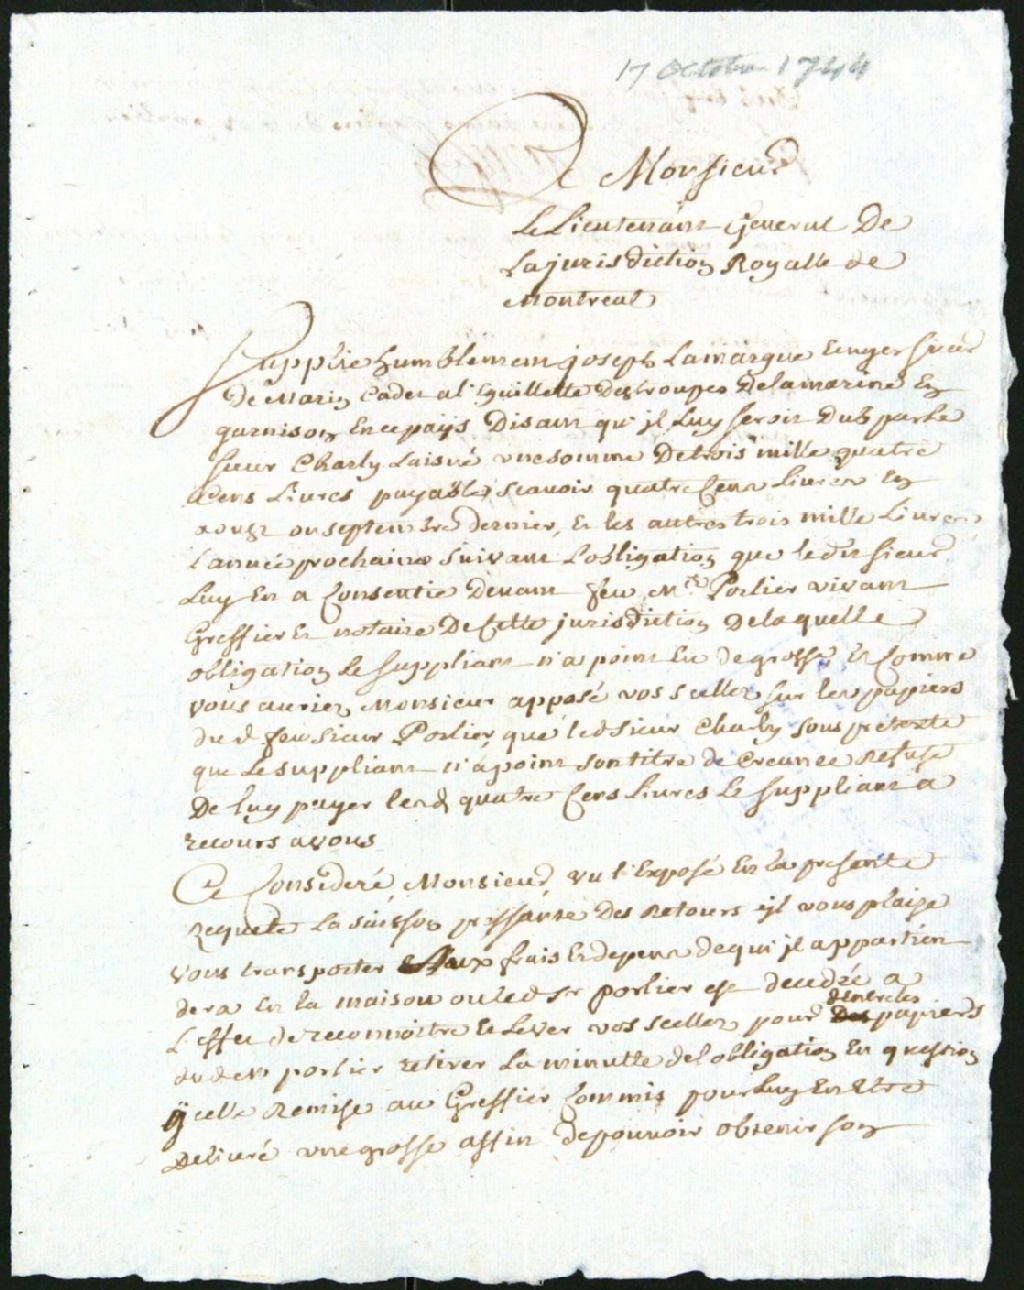 17 octobre 1744
A Monsieur
Le Lieutenant General De
La jurisdiction Royalle de
Montreal
Supplie humblement joseph Lamarque sieur
De Marin Cadet a l'Eguillette Des troupes De la marine En
garnison En ce paÿs Disant qu'jl Luy seroit Dub par le
sieur Charly Laisné une somme De trois mille quatre
Cens Livres payable scavoir quatre Cens Livres En
aoust ou septembre dernier, Et les autres trois mille Livres
L'année prochaine suivant L'obligation que le dit sieur
Luy En a Consentie devant feu Mr Porlier vivant
Greffier Et notaire De Cette jurisdiction De laquelle
obligation Le suppliant n'a point Eu de grosse Et Comme
vous auriez Monsieur apposé vos scellez sur les papiers
du d feu sieur Porlier, que led sieur Charly sous prétexte
que Le suppliant n'a point son titre de Creance Refuse
De luy payer lesd quatre Cens Livres Le suppliant a
recours a vous
Ce Consideré, Monsieur, vu l'Exposé En la presente
Requete La saison pressante Des Retours ijl vous plaise
vous transporter aux frais Et depens de qui jl appartien
dera En la maison ou led sr porlier est decedée a
L'effet de reconnoitre et Lever vos scellez pour d'entre les papiers
dud sr porlier retirer La minutte de l'obligation En question
ycelle Remise au Greffier Commis pour Luy En Etre
Delivré une grosse affin de pouvoir obtenir son